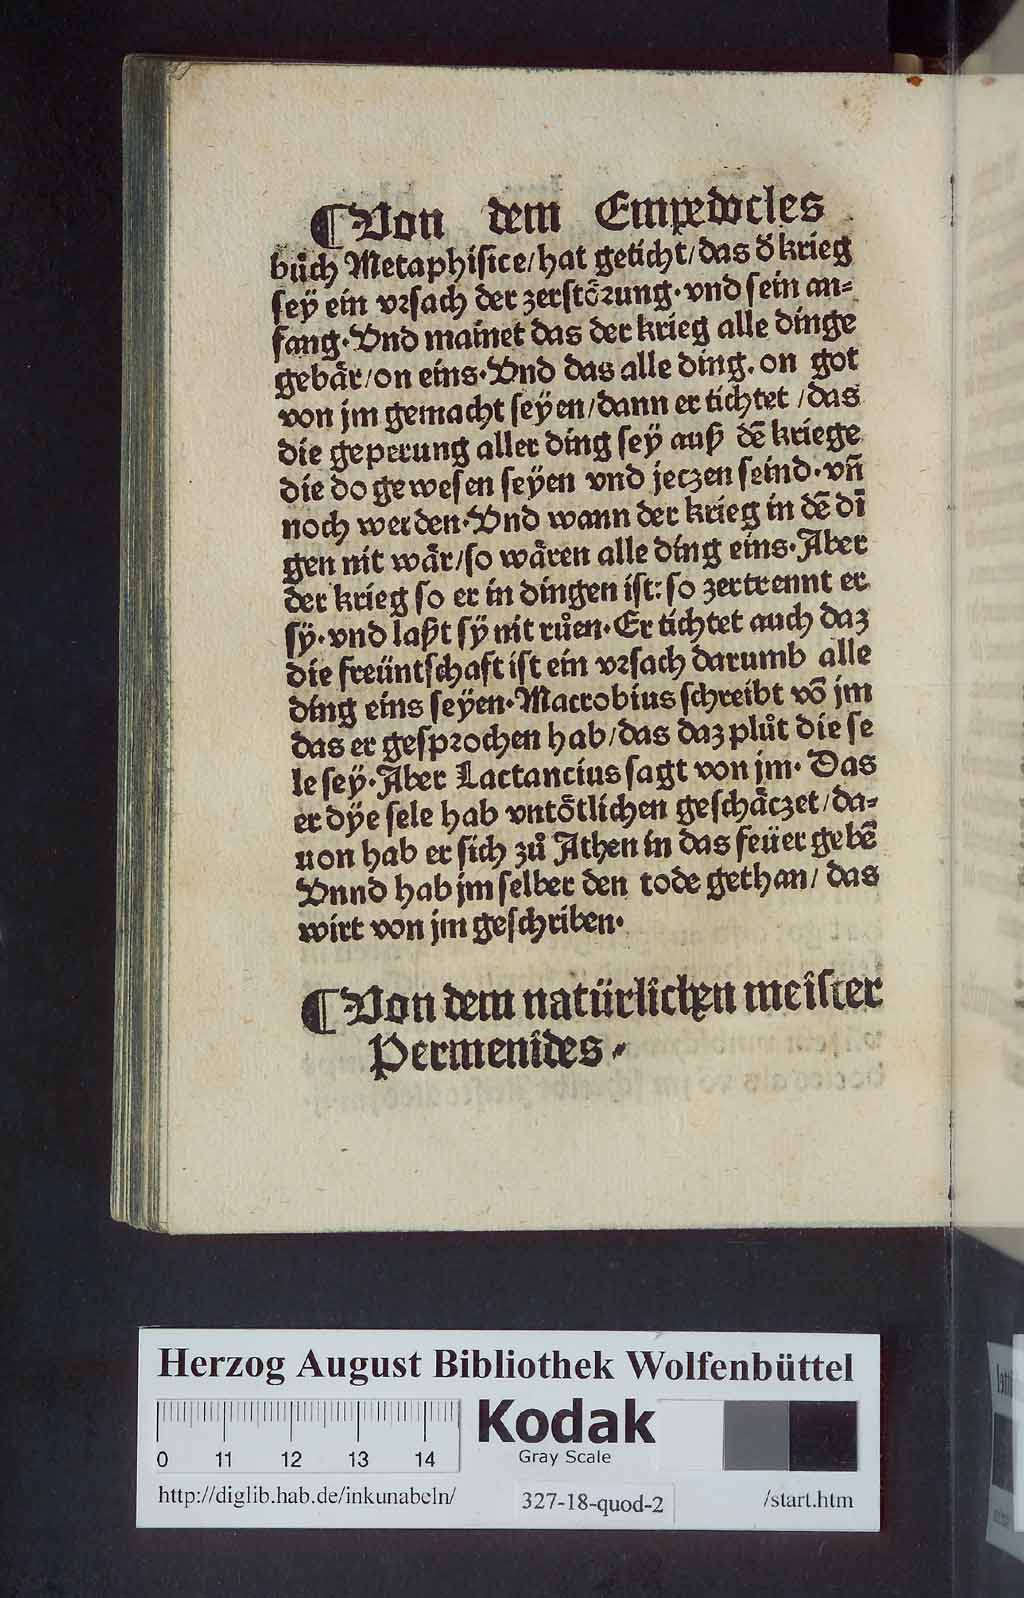 ¶Von dem Empedocles
bůch Metaphisice/hat geticht/das d̕ krieg
seÿ ein vrsach der zerstörung·vnd sein an=
fang·Vnd mainet das der krieg alle dinge
gebär/on eins·Vnd das alle ding. on got
von jm gemacht seÿen/dann er tichtet/das
die geperung aller ding seÿ auß dē kriege
die do gewesen seÿen vnd jeczen seind·vn̄
noch werden·Vnd wann der krieg in dē di̅
gen nit wär/so wären alle ding eins·Aber
der krieg so er in dingen ist: so zertrennt er
sÿ·vnd laßt sÿ nit růen·Er tichtet auch daz
die freüntschaft ist ein vrsach darumb alle
ding eins seÿen·Macrobius schreibt vō jm
das er gesprochen hab/das daz plůt die se
le seÿ·Aber Lactancius sagt von jm· Das
er dÿe sele hab vntötlichen geschäczet/da=
uon hab er sich zů Athen in das feüer gebē
Vnnd hab jm selber den tode gethan/ das
wirt von jm geschriben·
¶Von dem natürlichen meister
Permenides·
Herzog August Bibliothek Wolfenbüttel
Kodak
Gray Scale
0 11 12 13 14
http://diglib.hab.de/inkunabeln/
327-18-quod-2
/start.htm